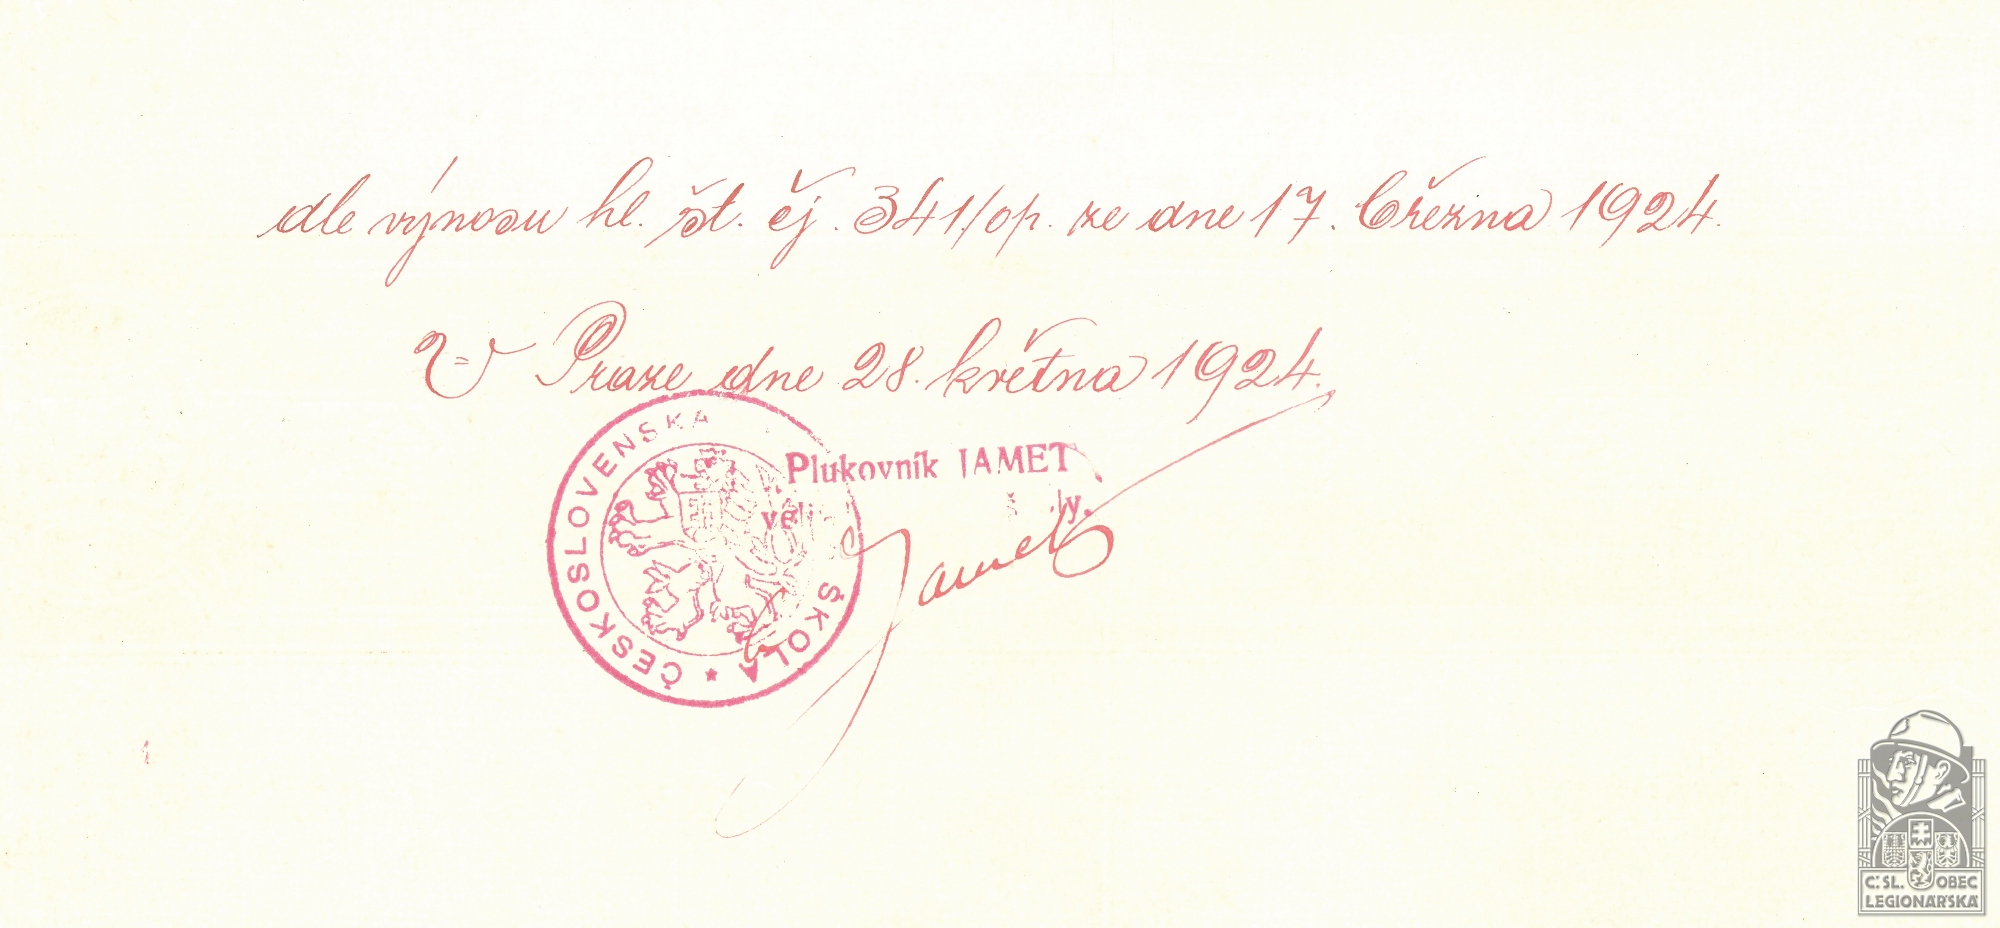 dle výnosu hl. št. čj. 341/op. ze dne 17. března 1924.
V Praze dne 28. května 1924.
ČESKOSLOVENSKÁ ŠKOLA
Plukovník JAMET
Jamet
Č.SL. OBEC
LEGIONÁŘSKÁ